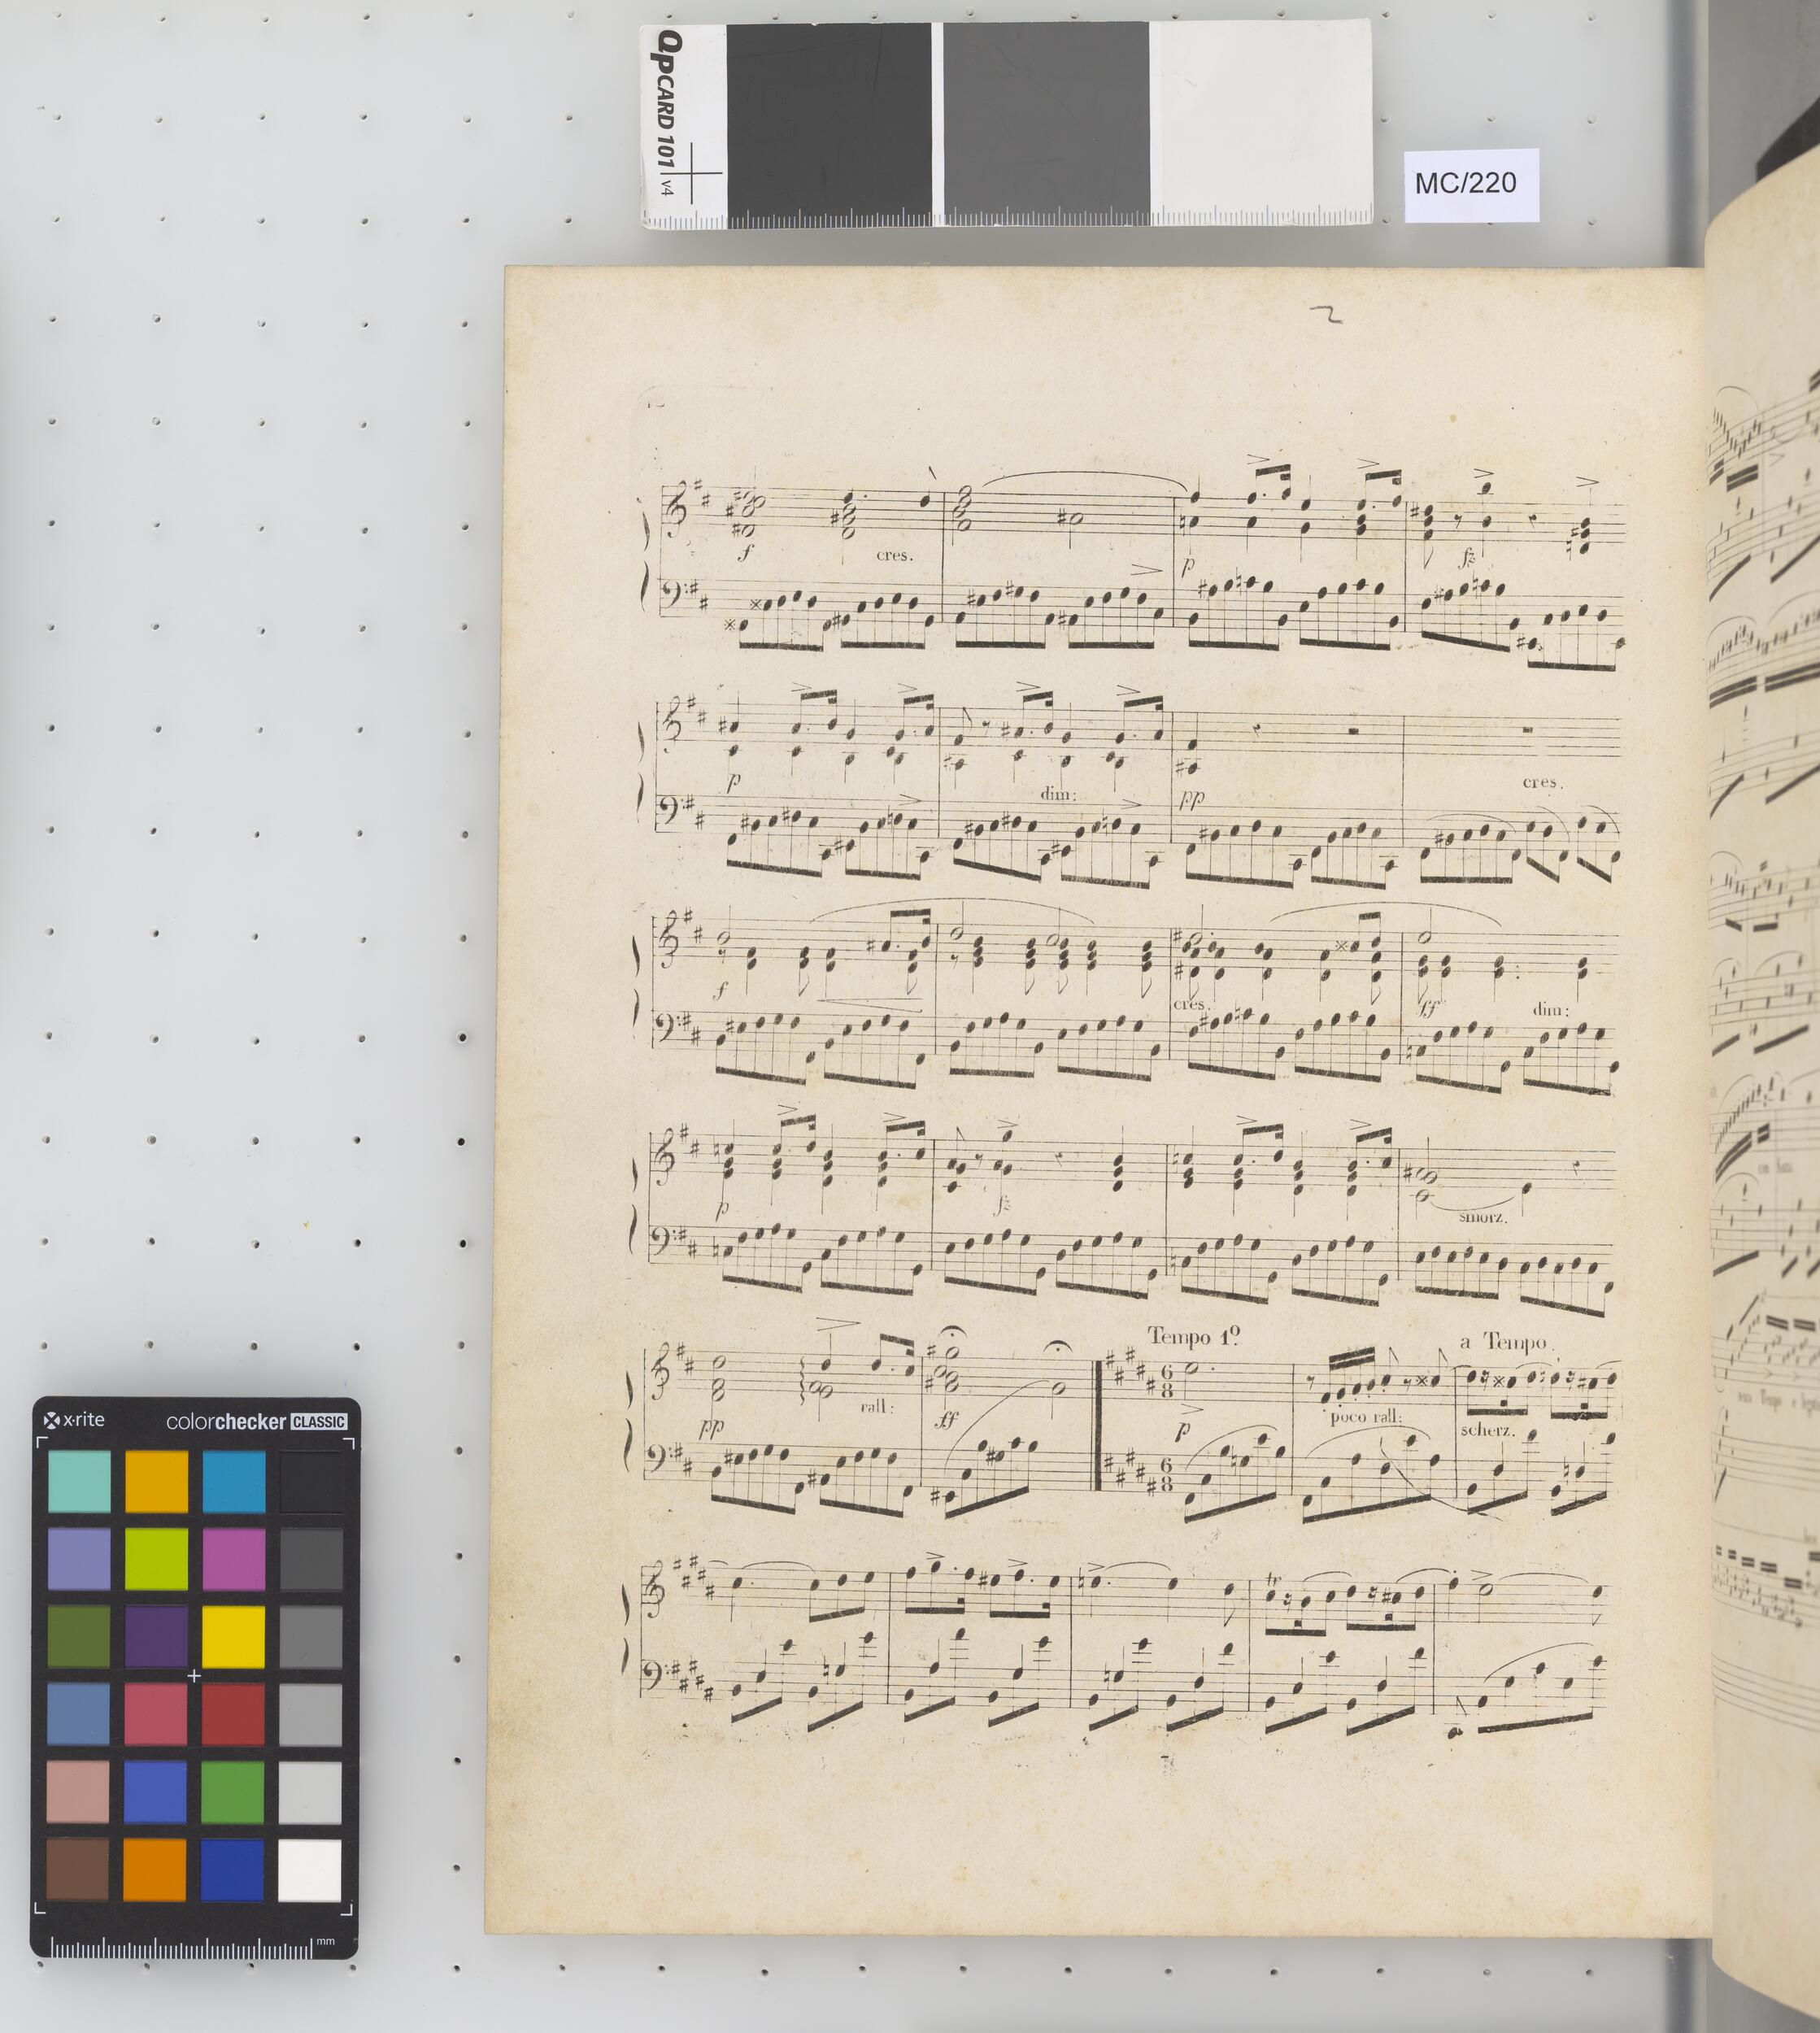 QPCARD 101 v4
MC/220
2
f cres. p fz
p dim: pp cres.
f cres. ff dim:
p fz smorz.
Tempo 1º. a Tempo.
pp rall: ff 6 8 p poco rall: scherz.
6 8
x-rite colorchecker CLASSIC
mm